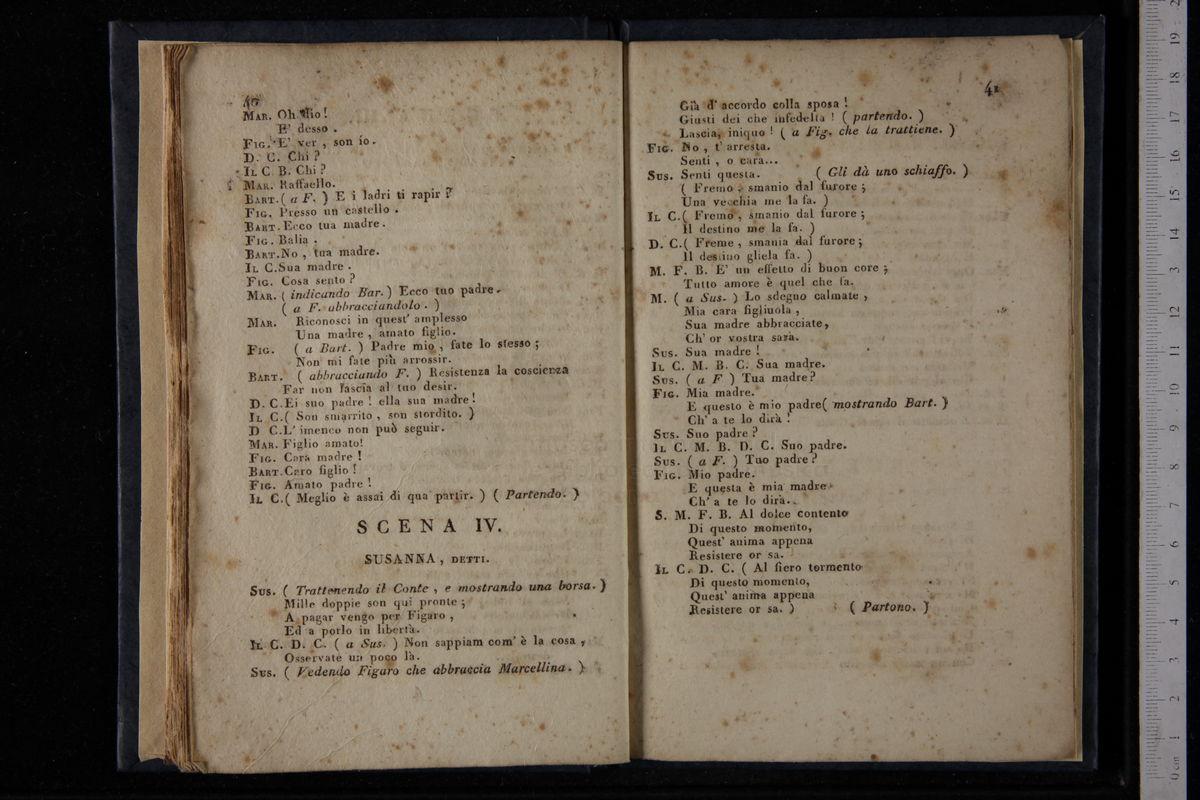 40
MAR. Oh Dio!
E' desso .
FIG. E' ver , son io.
D. C. Chi ?
IL C. B. Chi ?
MAR. Raffaello.
BART. ( a F. ) E i ladri ti rapir ?
FIG. Presso un castello .
BART. Ecco tua madre.
FIG. Balia .
BART. No , tua madre.
IL C. Sua madre .
FIG. Cosa sento ?
MAR. ( indicando Bar. ) Ecco tuo padre.
( a F. abbracciandolo . )
MAR. Riconosci in quest' amplesso
Una madre , amato figlio.
FIG. ( a Bart. ) Padre mio , fate lo stesso ;
Non mi fate più arrossir.
BART. ( abbracciando F. ) Resistenza la coscienza
Far non lascia al tuo desir.
D. C. Ei suo padre ! ella sua madre !
IL C. ( Son smarrito , son stordito. )
D C. L' imeneo non può seguir.
MAR. Figlio amato!
FIG. Cara madre !
BART. Caro figlio !
FIG. Amato padre !
IL C. ( Meglio è assai di qua partir. ) ( Partendo. )
SCENA IV.
SUSANNA , DETTI.
SUS. ( Trattenendo il Conte , e mostrando una borsa. )
Mille doppie son qui pronte ;
A pagar vengo per Figaro ,
Ed a porlo in libertà.
IL C. D. C. ( a Sus. ) Non sappiam com' è la cosa ,
Osservate un poco là.
SUS. ( Vedendo Figaro che abbraccia Marcellina. )
41
Già d' accordo colla sposa !
Giusti dei che infedeltà ! ( partendo. )
Lascia, iniquo ! ( a Fig. che la trattiene. )
FIG. No , t' arresta.
Senti , o cara...
SUS. Senti questa. ( Gli dà uno schiaffo. )
( Fremo , smanio dal furore ;
Una vecchia me la fa. )
IL C. ( Fremo , smanio dal furore ;
Il destino me la fa. )
D. C. ( Freme , smania dal furore ;
Il destino gliela fa. )
M. F. B. E' un effetto di buon core ;
Tutto amore è quel che fa.
M. ( a Sus. ) Lo sdegno calmate ,
Mia cara figliuola ,
Sua madre abbracciate,
Ch' or vostra sarà.
SUS. Sua madre !
IL C. M. B. C. Sua madre.
SUS. ( a F ) Tua madre ?
FIG. Mia madre.
E questo è mio padre ( mostrando Bart. )
Ch' a te lo dirà !
SUS. Suo padre ?
IL C. M. B. D. C. Suo padre.
SUS. ( a F. ) Tuo padre ?
FIG. Mio padre.
E questa è mia madre
Ch' a te lo dirà.
S. M. F. B. Al dolce contento
Di questo momento,
Quest' anima appena
Resistere or sa.
IL C. D. C. ( Al fiero tormento
Di questo momento,
Quest' anima appena
Resistere or sa. ) ( Partono. )
0 cm 1 2 3 4 5 6 7 8 9 10 11 12 13 14 15 16 17 18 19